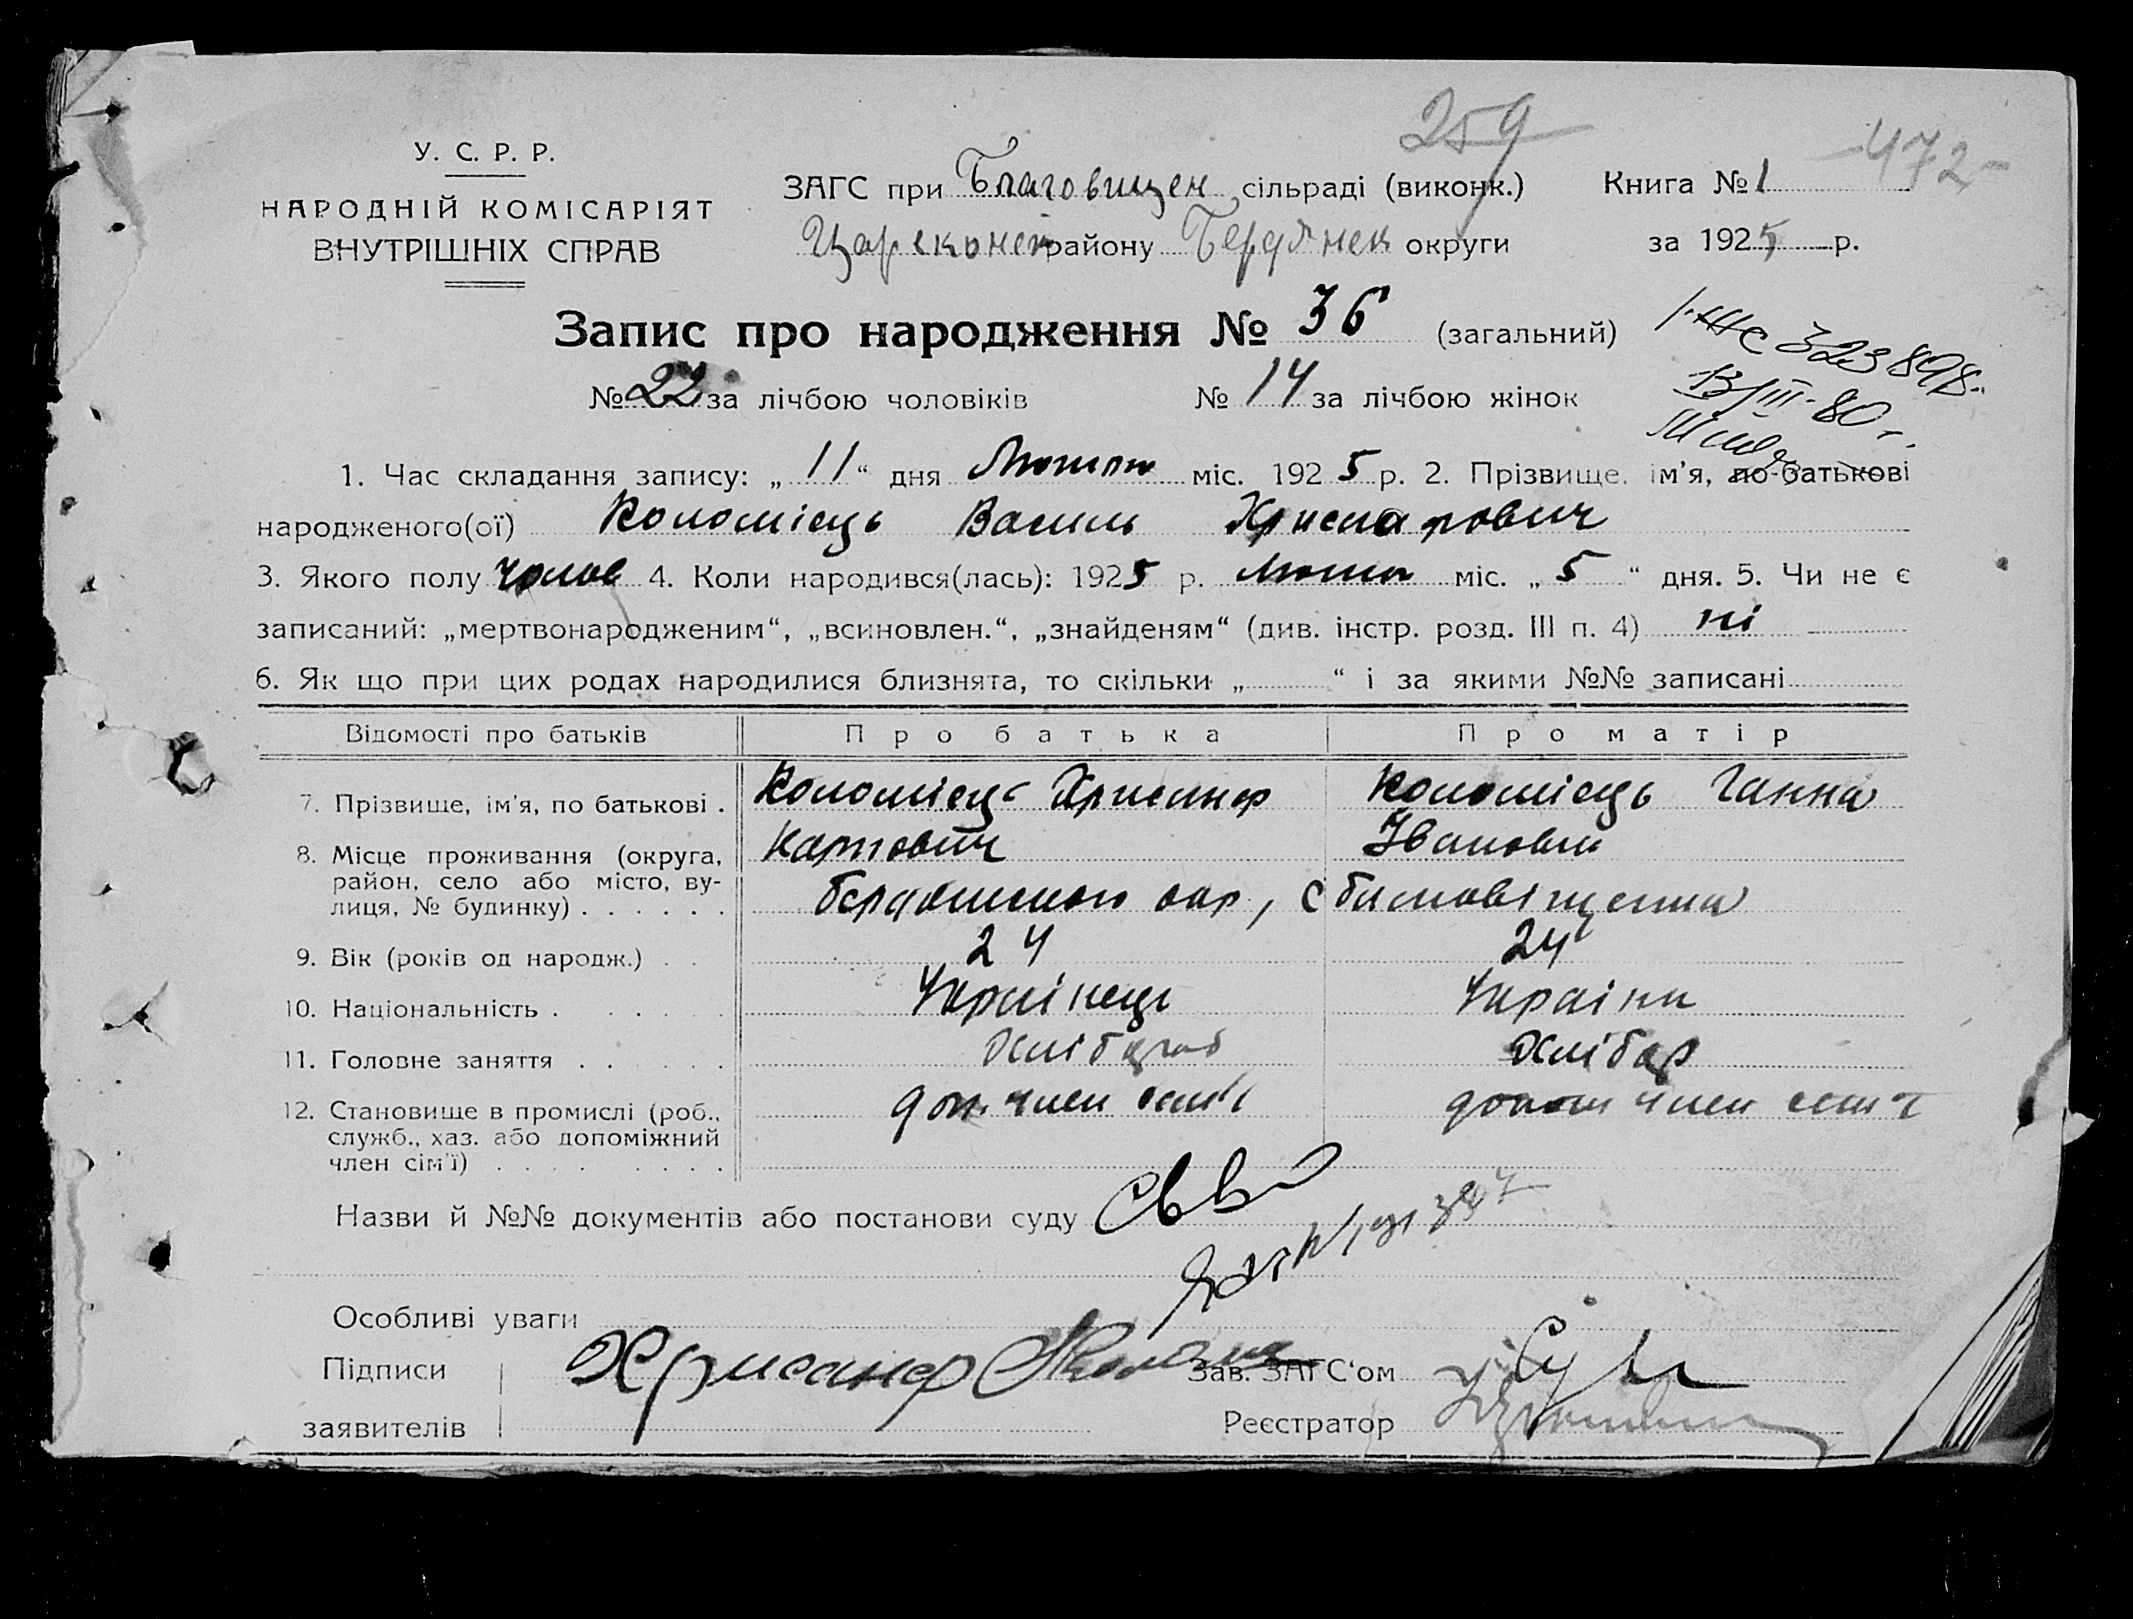 259
472
У. С. Р. Р.
НАРОДНІЙ КОМІСАРІЯТ
ВНУТРІШНІХ СПРАВ
ЗАГС при Благовищен сільраді (виконк.)
Книга № 1
Царекон району Бердянск округи
за 1925 р.
Запис про народження № 36 (загальний)
№ 22 за лічбою чоловіків № 14 за лічбою жінок
323898
13/III-80 г.
1. Час складання запису: „ 11 “ дня Лютого міс. 1925 р. 2. Прізвище, ім'я, по-батькові
народженого(ої) Коломієць Василь
3. Якого полу Чолов 4. Коли народився(лась): 1925 р. Лютого міс. „ 5 “ дня. 5. Чи не є
записаний: „мертвонародженим“, „всиновлен.“, „знайденям“ (див. інстр. розд. III п. 4) ні
6. Як що при цих родах народилися близнята, то скільки „ “ і за якими №№ записані
Відомості про батьків Про батька Про матір
7. Прізвище, ім'я, по батькові . Коломієць Хрисанф Коломієць Ганна
Карпович
8. Місце проживання (округа, район, село або місто, вулиця, № будинку) . . . . . .
9. Вік (років од народж.) . . 24 24
10. Національність . . . . . . Українець Україн
11. Головне заняття . . . . . . Хлібороб Хлібор
12. Становище в промислі (роб.,
служб., хаз. або допоміжний
член сім'ї) . . . . . . . . .
доп. член сем'ї член
Назви й №№ документів або постанови суду
Особливі уваги
Підписи
заявителів
Хрисанф
Зав. ЗАГС'ом
Реєстратор